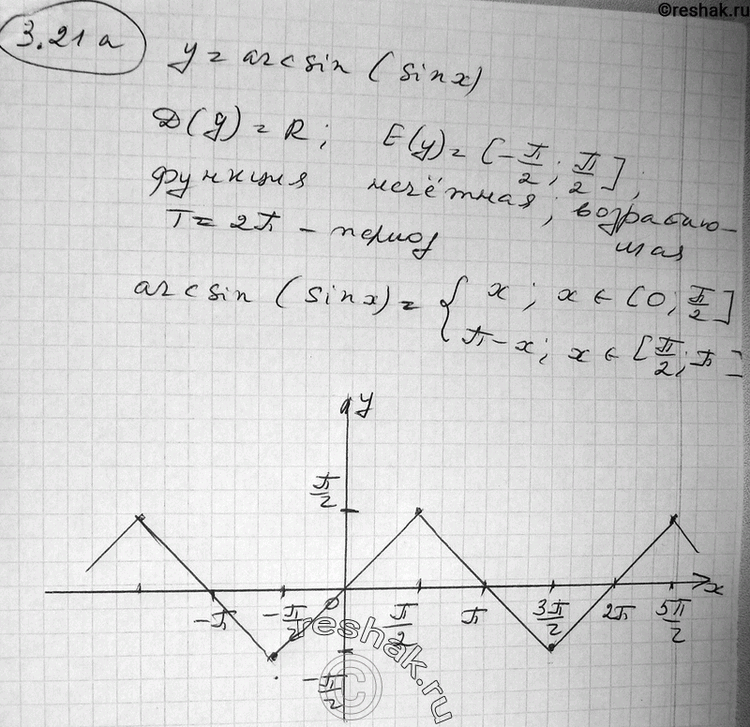 ©reshak.ru
3.21а
y = arcsin (sin x)
D(y) = R; E(y) = [-π/2; π/2];
функция нечётная; возрастаю-
щая
T = 2π - период
arcsin (sin x) = { x; x ∈ [0; π/2]
π-x; x ∈ [π/2; π]
y
π/2
-π -π/2 0 π/2 π 3π/2 2π 5π/2 x
-π/2
reshak.ru
©